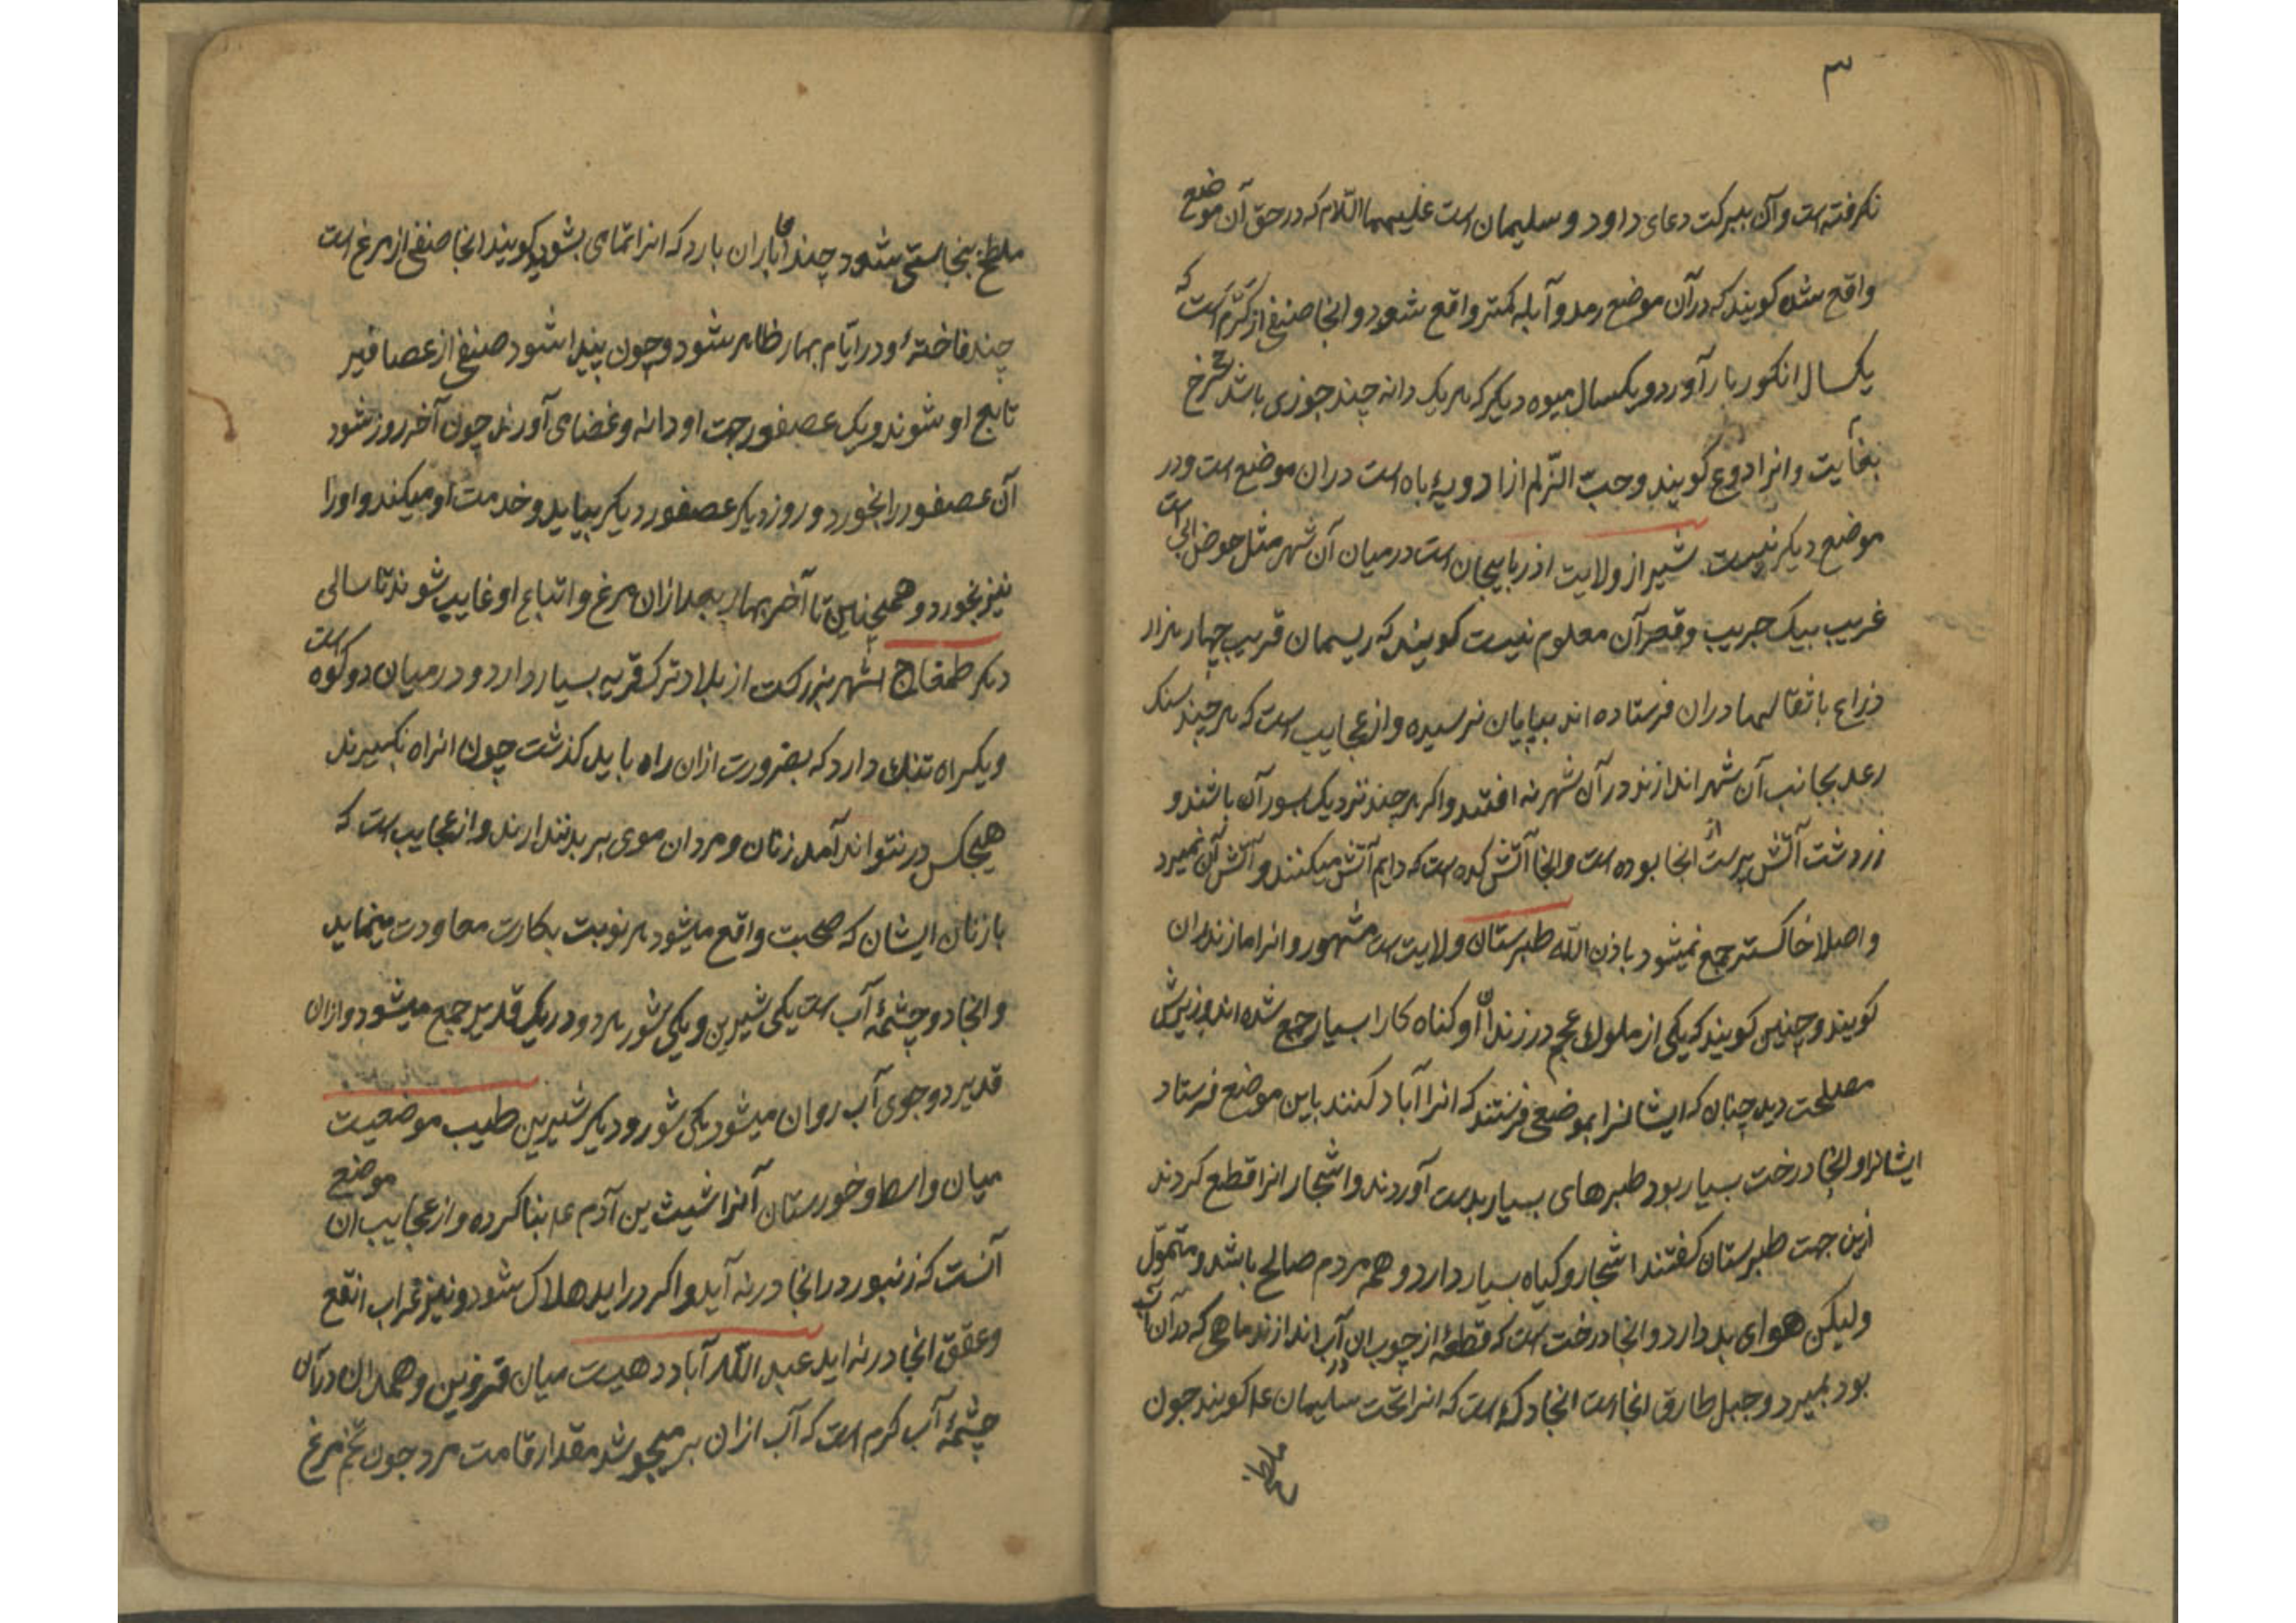 ۳
نکرفته است وآن ببرکت دعای داود و سلیمان است علیهما السلام که در حق آن موضع
واقع شده کویند که درآن موضع رمد و آبله کمتر واقع شود و انجا صنفی از کرم است که
یکسال انکور بار آورد و یکسال میوه دیکر که هر یک دانه چند جوزی باشد سرخ
بغایت و انرا دوع کویند وحب الزلم از ادویهٔ باه است دران موضع است ودر
موضع دیکر نیست شیز از ولایت اذربایجان است در میان آن شهر مثل حوض آبی است
غریب بیک جریب وقعر آن معلوم نیست کویند که ریسمان قریب چهار هزار
ذراع با ثقالها دران فرستاده اند بپایان نرسیده واز عجایب است که هر چند سنک
رعد بجانب آن شهر اندازند در آن شهر نه افتد واکر هر چند نزدیک بسور آن باشند و
زردشت آتش پرست از انجا بوده است وانجا آتش کده است که دایم آتش میکنند وآتش آن نمیرد
واصلا خاکستر جمع نمیشود باذن الله طبرستان ولایت است مشهور وانرا مازندران
کویند وچنین کویند که یکی از ملوک عجم در زندان او کناه کارا بسیار جمع شده اند وزیرش
مصلحت دید چنان که ایشانرا بموضعی فرستند که انرا آباد کنند باین موضع فرستاد
ایشانرا وانجا درخت بسیار بود طبرهای بسیار بدست آوردند واشجار انرا قطع کردند
ازین جهت طبرستان کفتند اشجار وکیاه بسیار دارد و همه مردم صالح باشد و متمول
ولیکن هوای بد دارد وانجا درخت است که قطعهٔ از چوب ان در آب اندازند ماهی که در آن آب
بود بمیرد وجبل طارق انجا است انجا دکهٔ است که انرا تخت سلیمان عم کویند جون
ملطخ
ملطخ بنجاستی شود چندانجا باران بارد که انرا تمامی بشوید کویند انجا صنفی از مرغ است
چند فاختهٔ ودر ایام بهار ظاهر شود وچون پیدا شود صنفی از عصافیر
تابع او شوند ویک عصفور جهت او دانه وغذا می آورند چون آخر روز شود
آن عصفور را بخورد و روز دیکر عصفور دیکر بیاید وخدمت او میکند واورا
نیز بخورد وهمچنین تا آخر بهار بعد ازان مرغ واتباع او غایب شوند تا سالی
دیکر طمغاج شهر بزرکست از بلاد ترک قریه بسیار دارد ودر میان دو کوه است
ویکراه تنک دارد که بضرورت ازان راه باید کذشت چون انراه بکیرند
هیچکس در نتواند آمد زنان ومردان موی بر بدن ندارند واز عجایب است که
با زنان ایشان که صحبت واقع میشود هر نوبت بکارت معاودت مینماید
وانجا دو چشمهٔ آب است یکی شیرین ویکی شور هر دو در یک قدیر جمع میشود وازان
قدیر دو جوی آب روان میشود یکی شور و دیکر شیرین طیب موضعیست
میان واسط وخورستان آنرا شیث بن آدم عم بنا کرده واز عجایب ان موضع
آنست که زنبور در انجا در نه آید واکر در اید هلاک شود ونیز غراب ابقع
وعقق انجا در نه اید عبد الله آباد دهیست میان قزوین وهمدان درآن
چشمهٔ آب کرم است که آب ازان بر میجوشد مقدار قامت مرد جون تخم مرغ